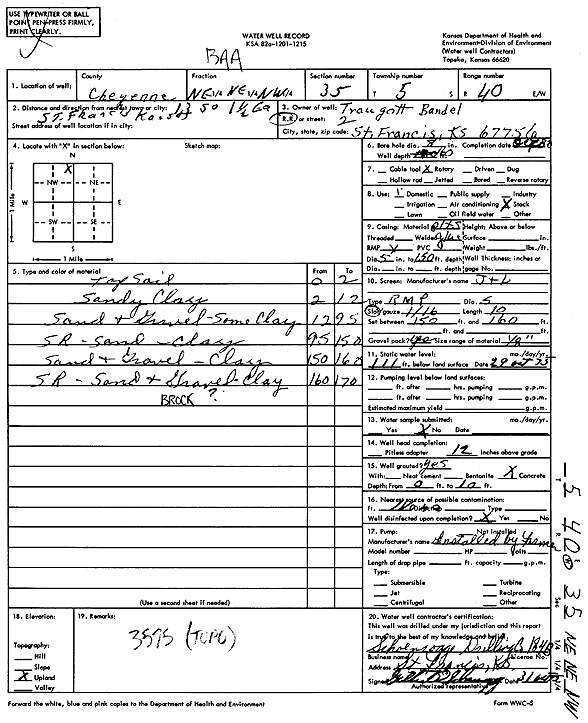 USE TYPEWRITER OR BALL
POINT PEN-PRESS FIRMLY,
PRINT CLEARLY.
WATER WELL RECORD
KSA 82a-1201-1215
Kansas Department of Health and
Environment-Division of Environment
(Water well Contractors)
Topeka, Kansas 66620
BAA
1. Location of well:
County
Cheyenne
Fraction
NE 1/4 NE 1/4 NW 1/4
Section number
35
Township number
T 5 S
Range number
R 40 E/W
2. Distance and direction from nearest town or city:
St. Francis Kansas
Street address of well location if in city:
3. Owner of well: Traugott Bandel
R.R. or street: 2
City, state, zip code: St. Francis, KS 67756
4. Locate with "X" in section below:
Sketch map:
N
X
NW NE
W E
SW SE
S
1 Mile
1 Mile
6. Bore hole dia. in. Completion date
Well depth
7. Cable tool X Rotary Driven Dug
Hollow rod Jetted Bored Reverse rotary
8. Use: Domestic Public supply Industry
Irrigation Air conditioning X Stock
Lawn Oil field water Other
9. Casing: Material Height: Above or below
Threaded Welded Surface in.
RMP PVC Weight: lbs./ft.
Dia. 5 in. to 150 ft. depth Wall Thickness: inches or
Dia. in. to ft. depth gage No.
5. Type and color of material
From To
Top Soil 0 2
Sandy Clay 2 12
Sand & Gravel - Some Clay 12 95
SR - Sand - Clay 95 150
Sand & Gravel - Clay 150 160
SR - Sand & Gravel - Clay 160 170
BROCK ?
(Use a second sheet if needed)
10. Screen: Manufacturer's name J + L
Type RMP Dia. 5
Slot/gauze 1/16 Length 10
Set between 150 ft. and 160 ft.
ft. and ft.
Gravel pack? yes Size range of material 1/8"
11. Static water level: mo./day/yr.
111 ft. below land surface Date 29 Oct 75
12. Pumping level below land surfaces:
ft. after hrs. pumping g.p.m.
ft. after hrs. pumping g.p.m.
Estimated maximum yield g.p.m.
13. Water sample submitted: mo./day/yr.
Yes X No Date
14. Well head completion:
Pitless adapter 12 Inches above grade
15. Well grouted? yes
With: Neat cement Bentonite X Concrete
Depth: From 0 ft. to 10 ft.
16. Nearest source of possible contamination:
ft. Type
Well disinfected upon completion? X Yes No
17. Pump: Not installed
Manufacturer's name Installed by
Model number HP Volts
Length of drop pipe ft. capacity g.p.m.
Type:
Submersible Turbine
Jet Reciprocating
Centrifugal Other
18. Elevation:
Topography:
Hill
Slope
X Upland
Valley
19. Remarks:
3575 (TOPO)
20. Water well contractor's certification:
This well was drilled under my jurisdiction and this report
is true to the best of my knowledge and belief.
Business name License No.
Address St Francis, Ks.
Signed
Authorized Representative
Forward the white, blue and pink copies to the Department of Health and Environment
Form WWC-5
T 5
R 40
Sec 35
NE NE NW
1/4 1/4 1/4